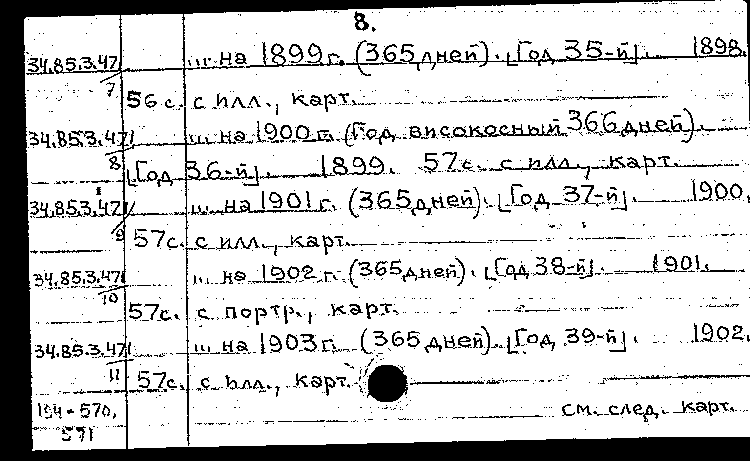 8.
34.85.3.47/7 ... на 1899 г. (365 дней). [Год 35-й]. 1898.
56 с. с илл., карт.
34.85.3.47/8 ... на 1900 г. (Год високосный 366 дней).
[Год 36-й]. 1899. 57 с. с илл., карт.
34.85.3.47/9 ... на 1901 г. (365 дней). [Год 37-й]. 1900.
57 с. с илл., карт.
34.85.3.47/10 ... на 1902 г. (365 дней). [Год 38-й]. 1901.
57 с. с портр., карт.
34.85.3.47/11 ... на 1903 г. (365 дней). [Год 39-й]. 1902.
57 с. с илл., карт.
194-570,
571
см. след. карт.